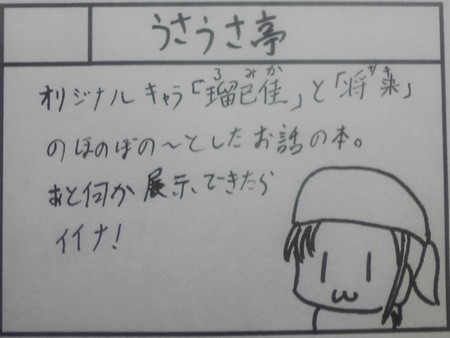 うさうさ亭
オリジナルキャラ「瑠巳佳」と「将
るみか
のほのぼの〜としたお話の本。
あと何か展示、できたら
イイナ!